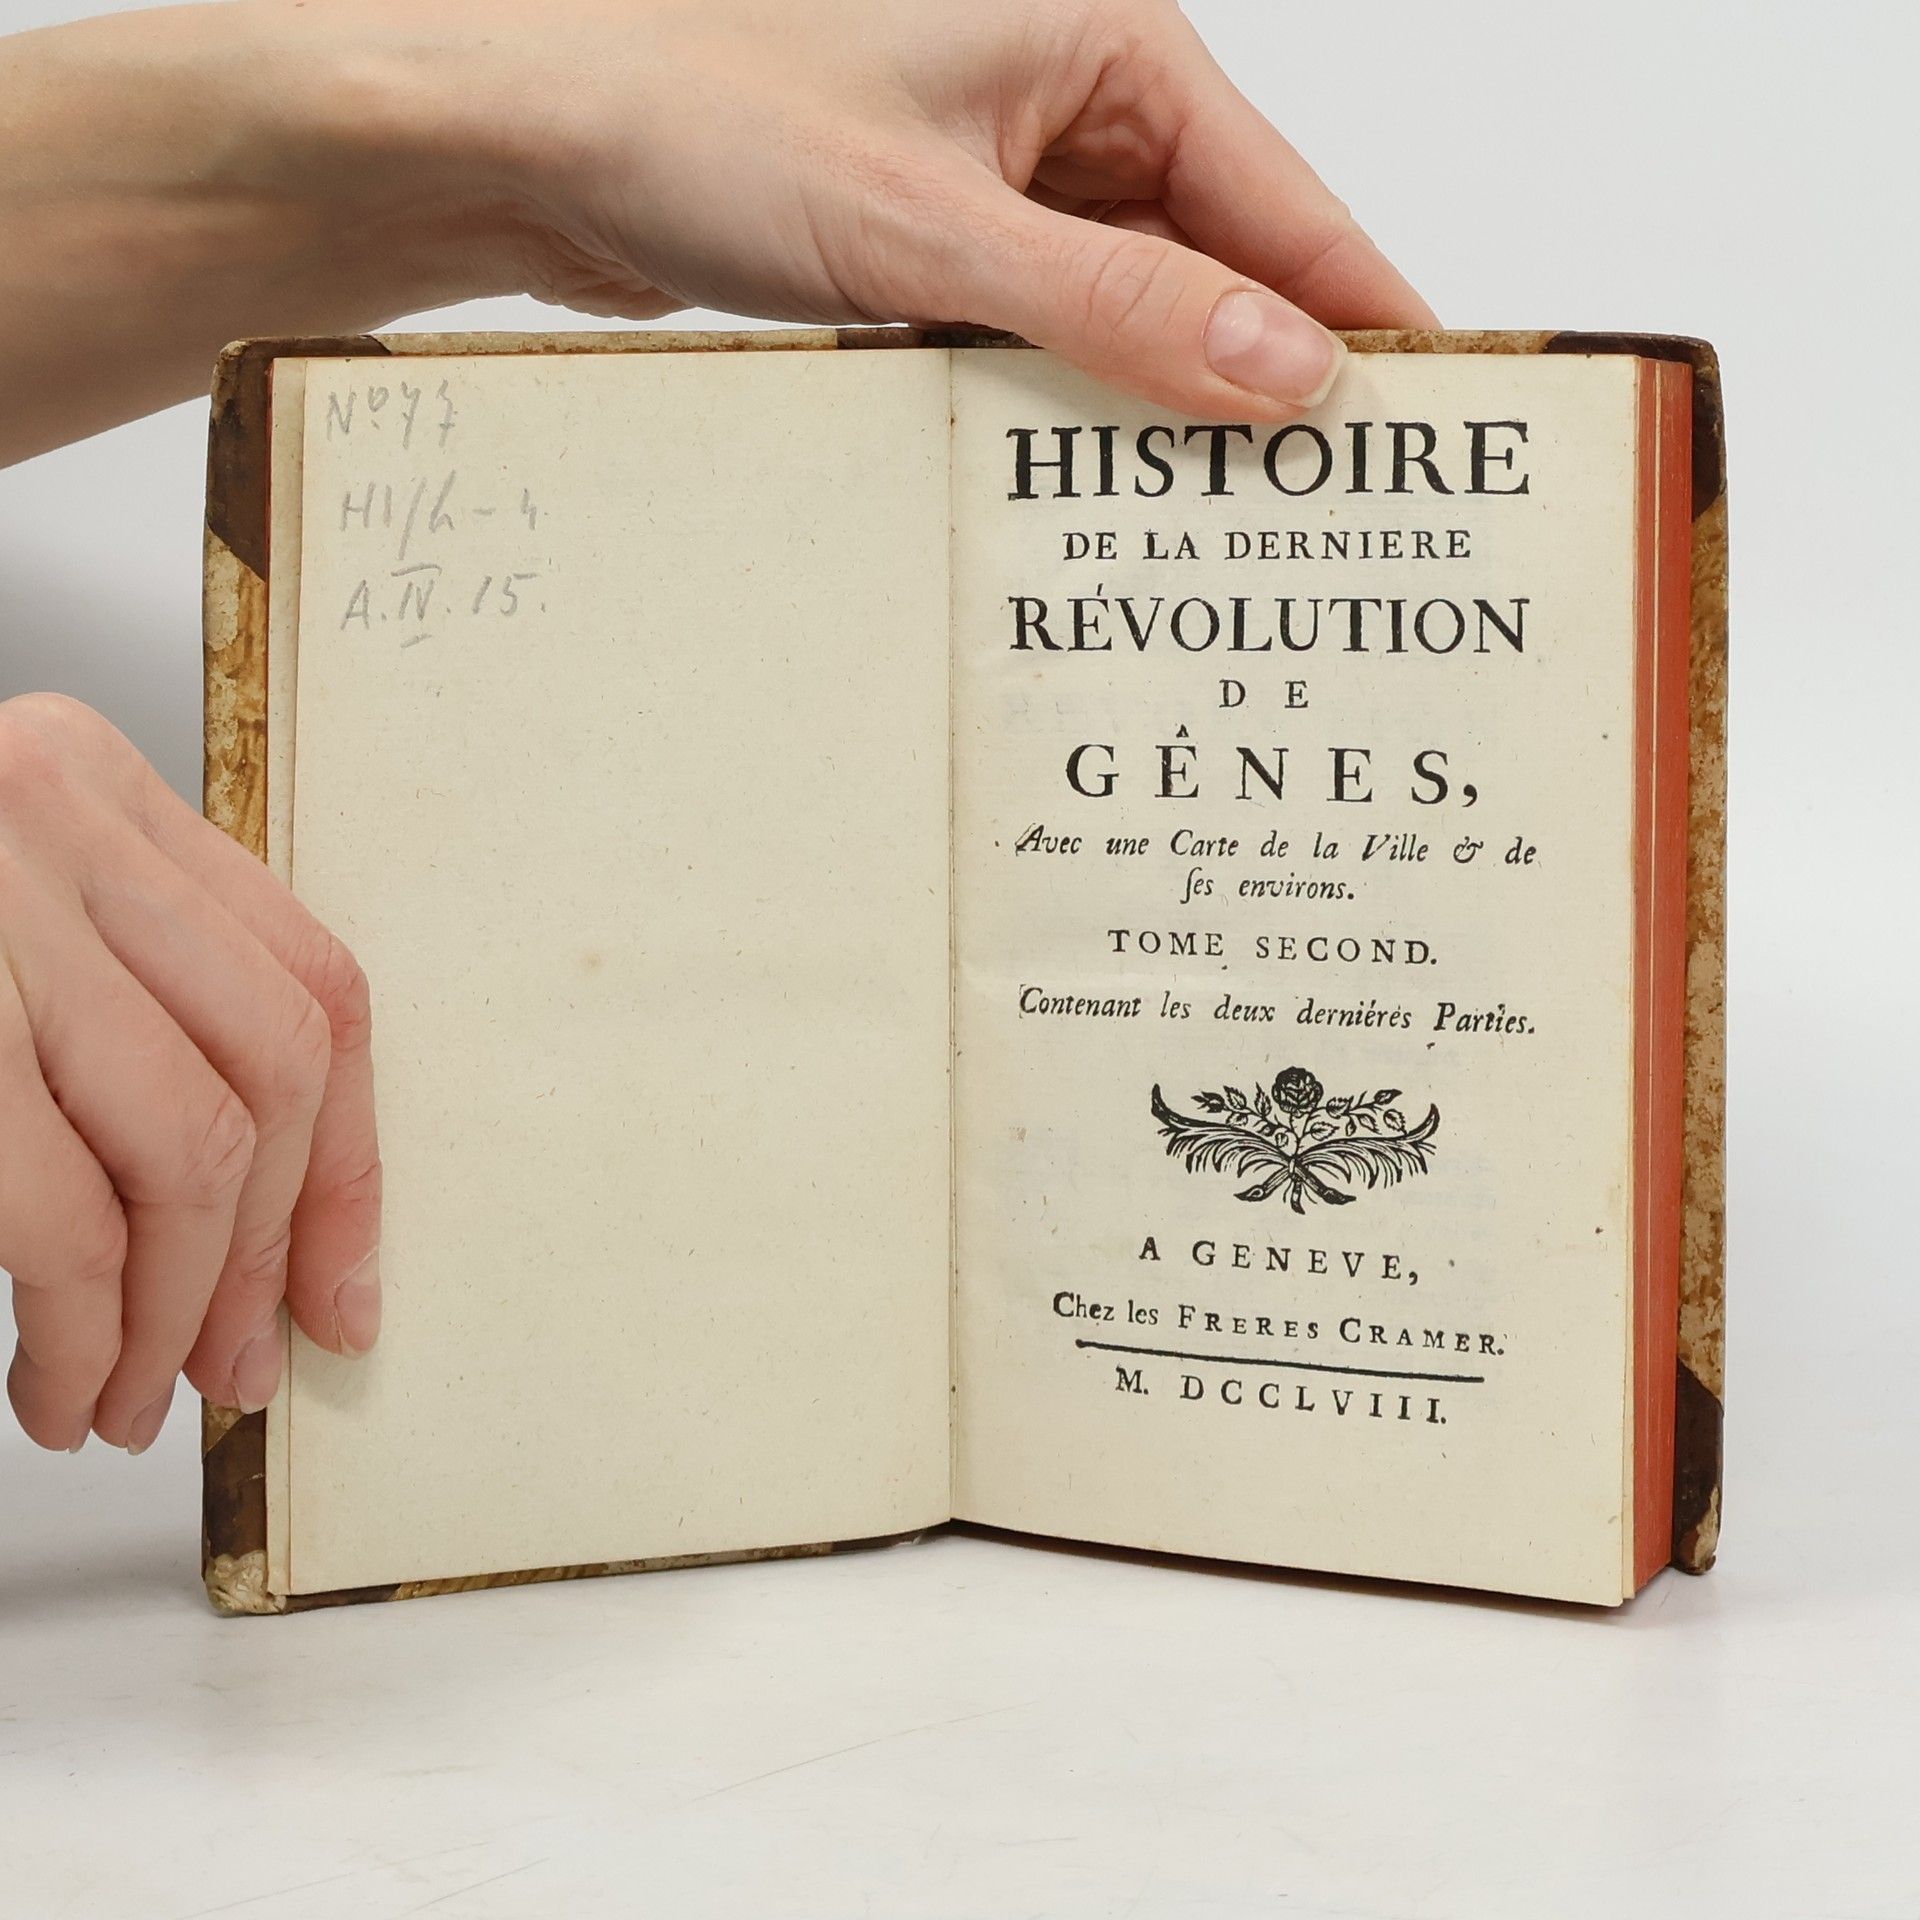 Nº 77
H1/h - 4.
A. IV. 15.
HISTOIRE
DE LA DERNIERE
RÉVOLUTION
DE
GÊNES,
Avec une Carte de la Ville & de
ſes environs.
TOME SECOND.
Contenant les deux derniéres Parties.
A GENEVE,
Chez les FRERES CRAMER.
M. DCCLVIII.